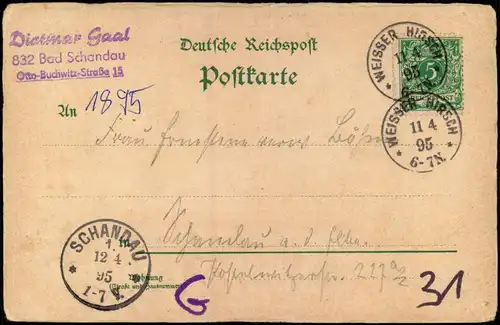 Dietmar Gaal
832 Bad Schandau
Otto-Buchwitz-Straße 15
Deutsche Reichspost
Postkarte
WEISSER HIRSCH
11 4
95
6-7N.
5
WEISSER HIRSCH
11 4
95
6-7N.
An 1895
Frau
in
Schandau a. d. Elbe.
Wohnung
(Straße und Hausnummer)
217
SCHANDAU
1.
12 4
95
1-7 V.
G
31